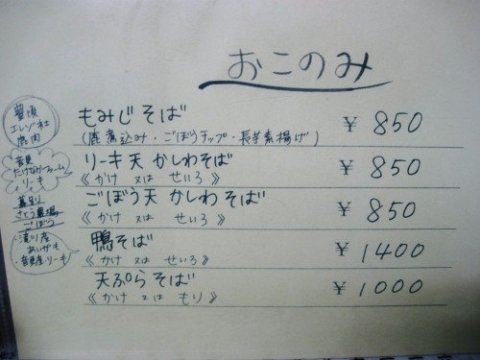 おこのみ
豊頃
エレゾ社
鹿肉
もみじそば ￥850
(鹿煮込み・ごぼうチップ・長芋素揚げ)
音更
たけなかファーム
リーキ
リーキ天 かしわそば ￥850
《かけ 又は せいろ》
幕別
さとう農場
ごぼう
ごぼう天 かしわそば ￥850
《かけ 又は せいろ》
滝川産
あいがも
音更産リーキ
鴨そば ￥1400
《かけ 又は せいろ》
天ぷらそば ￥1000
《かけ 又は もり》